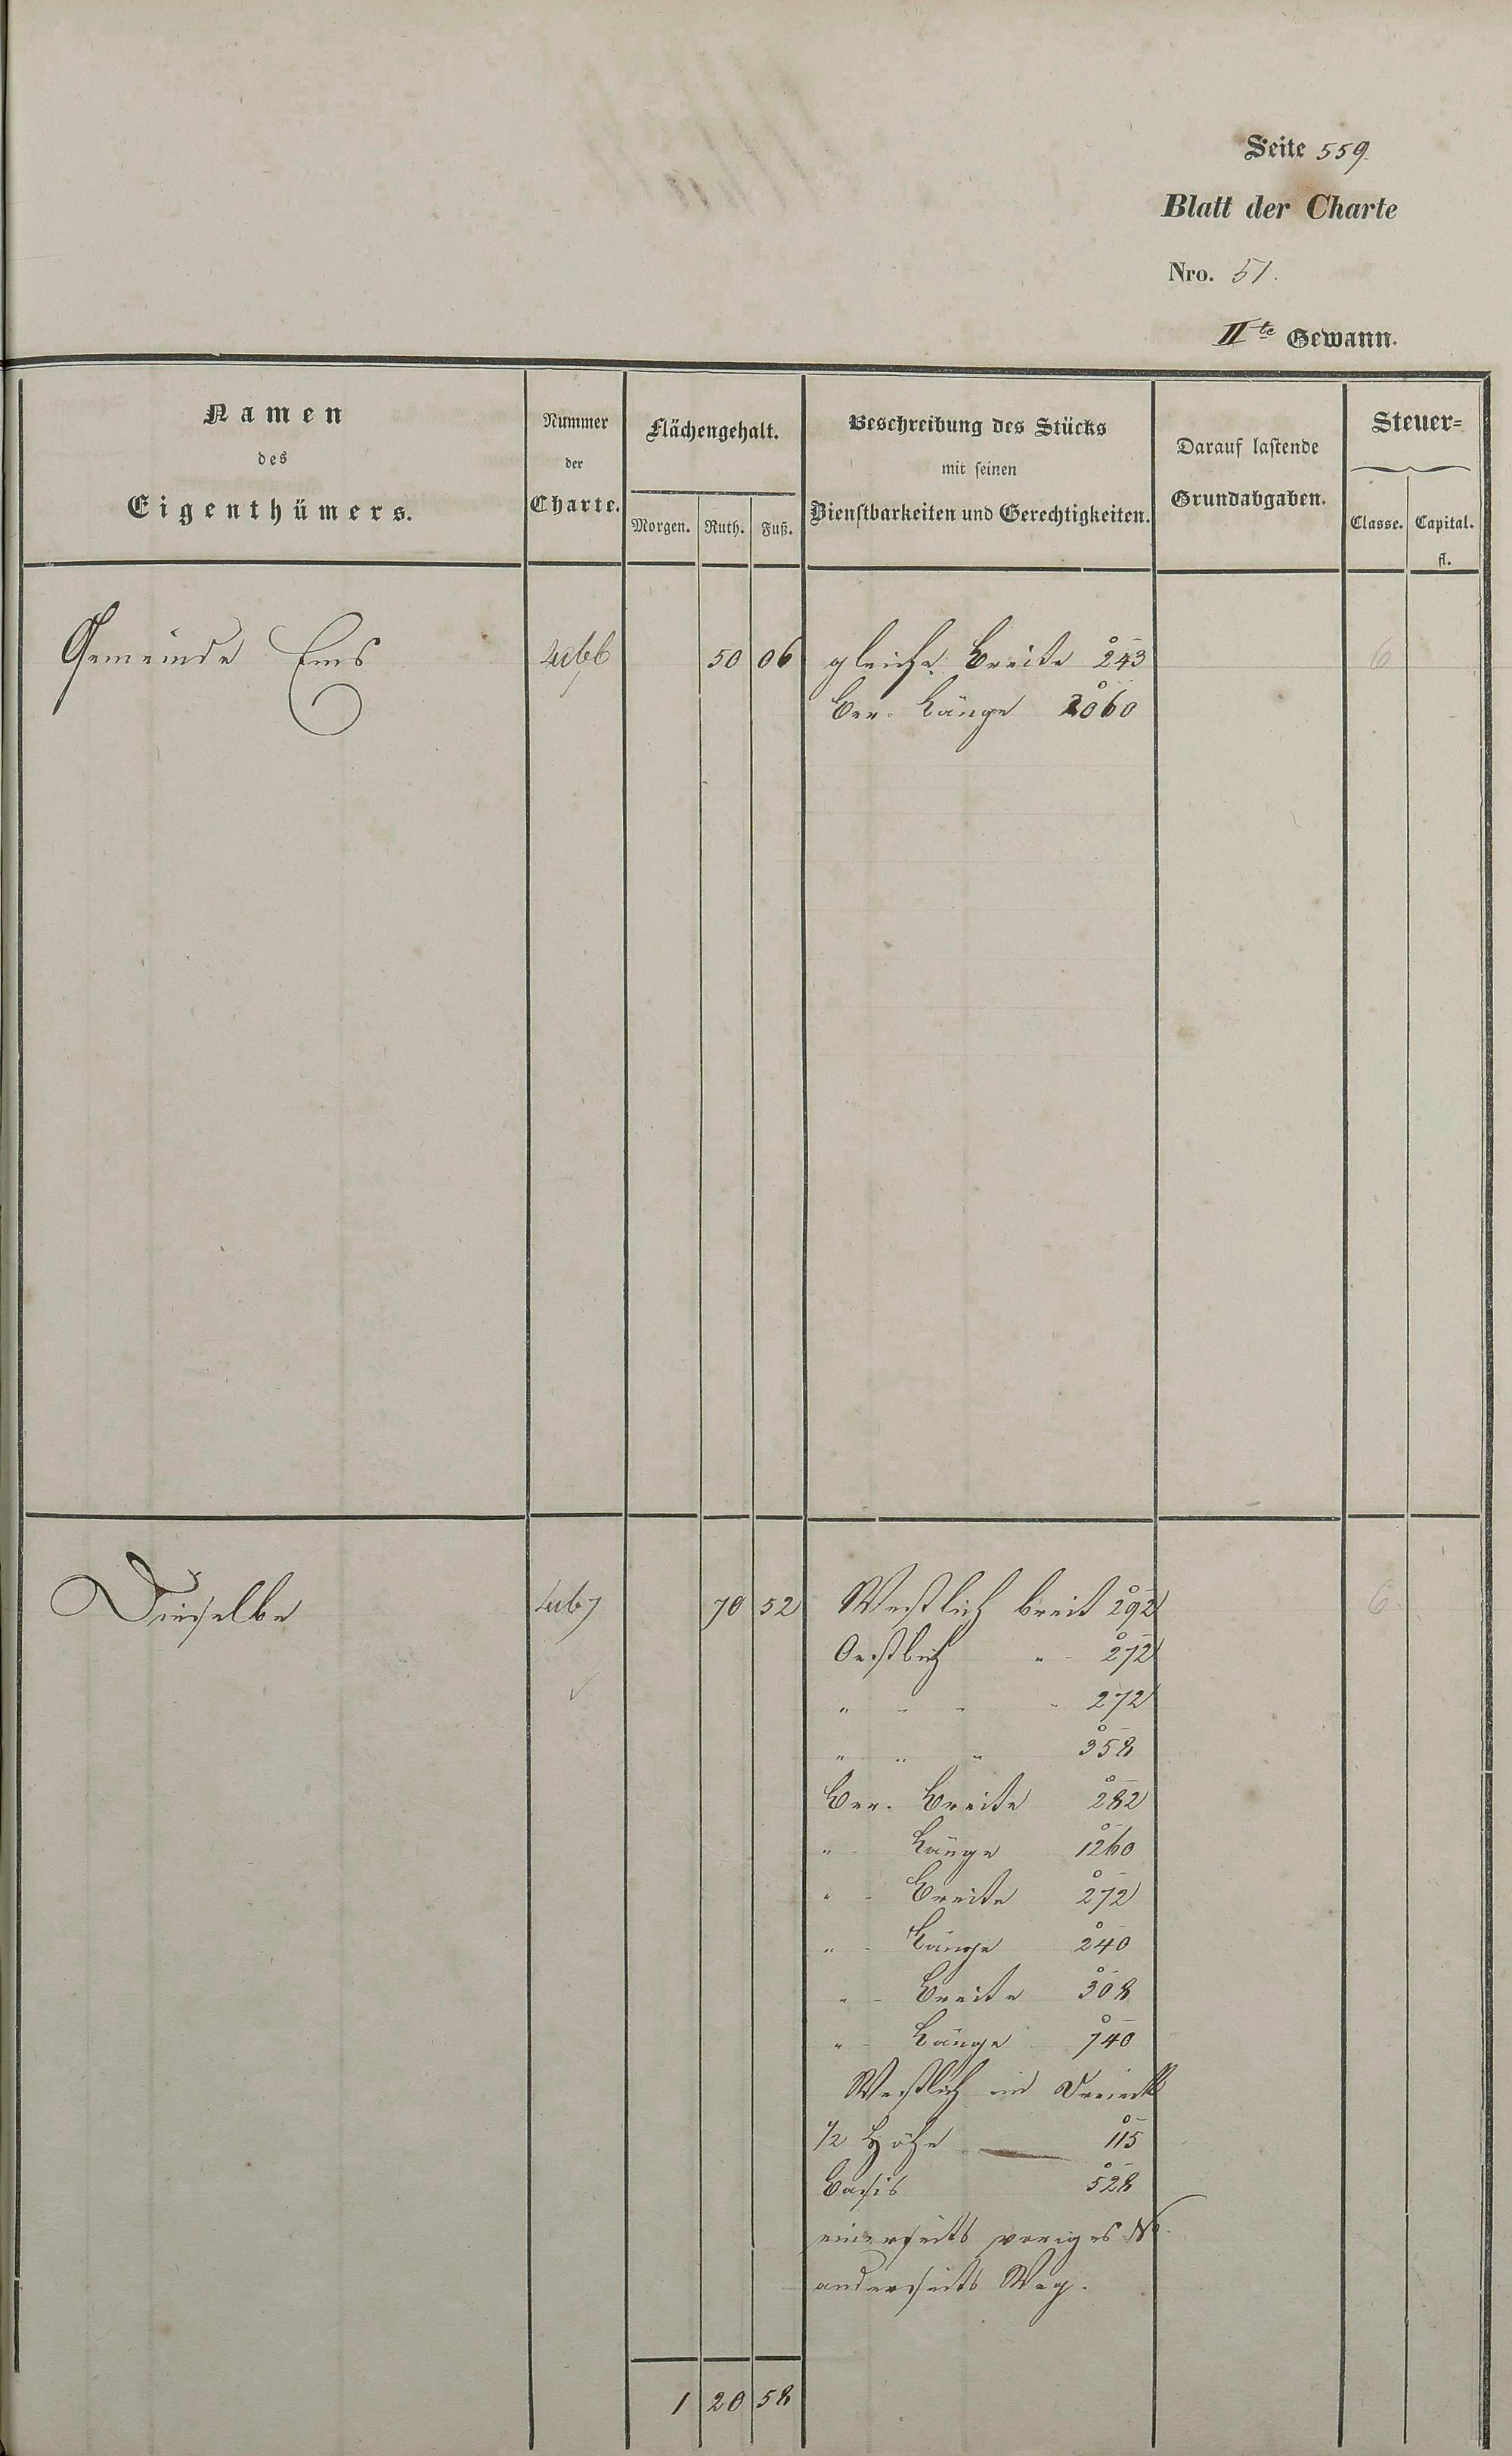 Seite 559.
Blatt der Charte
Nro. 51.
IIte Gewann.
Namen
des
Eigenthümers.
Nummer
der
Charte.
Flächengehalt.
Morgen. Ruth. Fuß.
Beschreibung des Stücks
mit seinen
Dienstbarkeiten und Gerechtigkeiten.
Darauf lastende
Grundabgaben.
Steuer-
Classe. Capital.
fl.
Gemeinde Ems 50 06 gleiche Breite 243 6
Ber. Länge 2060
Dieselbe 70 52 Westlich breit 292 6
Oestlich " 272
" - - - 272
" " " 358
Ber. Breite 282
" - Länge 1260
" - Breite 272
" - Länge 240
" - Breite 308
" - Länge 740
Westlich im Dreieck
1/2 Höhe 115
Basis 528
einerseits voriges No
anderseits Weg.
1 20 58